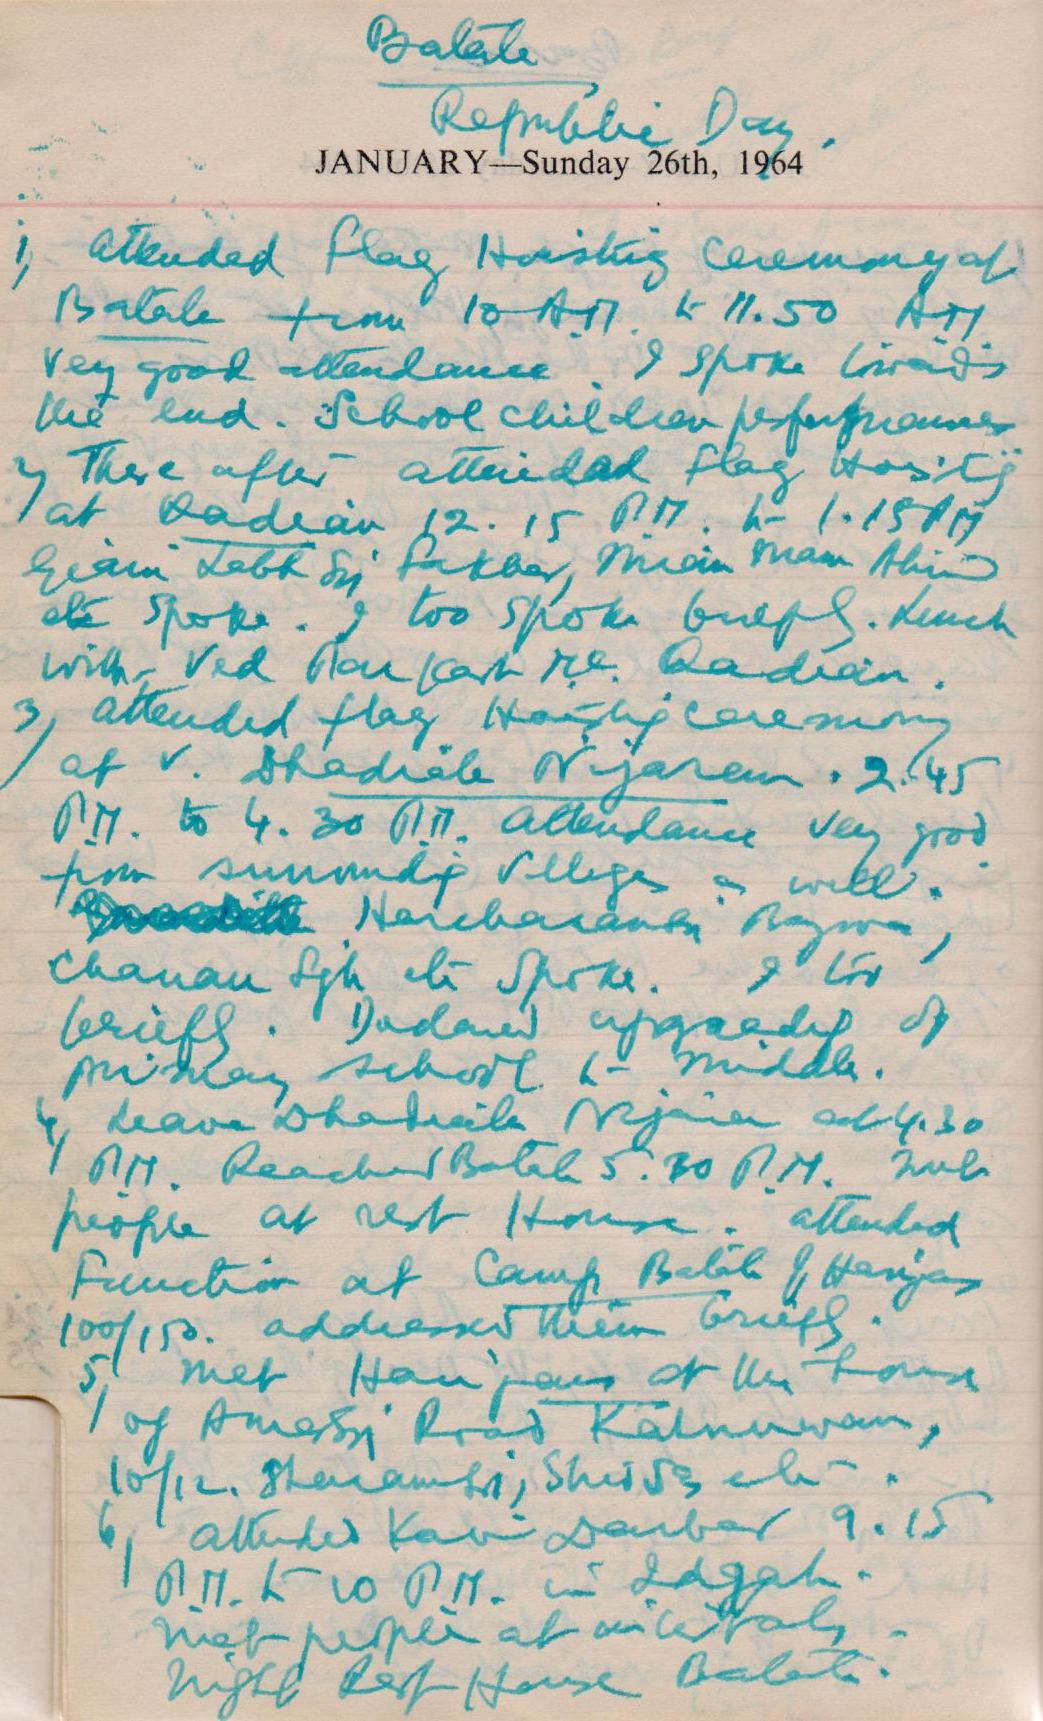 Batala
Republic Day.
JANUARY—Sunday 26th, 1964
1, Attended Flag Hoisting Ceremony at
Batala from 10 A.M. to 11.50 AM
Very good attendance. I spoke towards
the end. School children performances
2, There after attended Flag Hoisting
at Qadian 12.15 P.M. to 1.15 PM
Giani Labh Sgh Fakhar, Mian
etc spoke. I too spoke briefly. Lunch
with Ved Parkash M.C. Qadian.
3, Attended flag Hoisting ceremony
at V. Dhadiala Nijaran. 2.45
P.M. to 4.30 P.M. Attendance very good
from surrounding villages as well.
Harcharan Bajwa,
Chanan Sgh etc spoke. I too
briefly. Declared upgrading of
primary school to Middle.
4, Leave Dhadiala Nijaran at 4.30
P.M. Reached Batala 5.30 P.M. Met
people at rest House. Attended
Function at Camp Batala of Harijans
100/150. addressed them briefly.
5, Met Harijans at the house
of Road Kahnuwan,
10/12. etc.
6, attended Kavi Darbar 9.15
P.M. to 10 P.M. in Idgah.
Met people at intervals.
Night Rest House Batala.